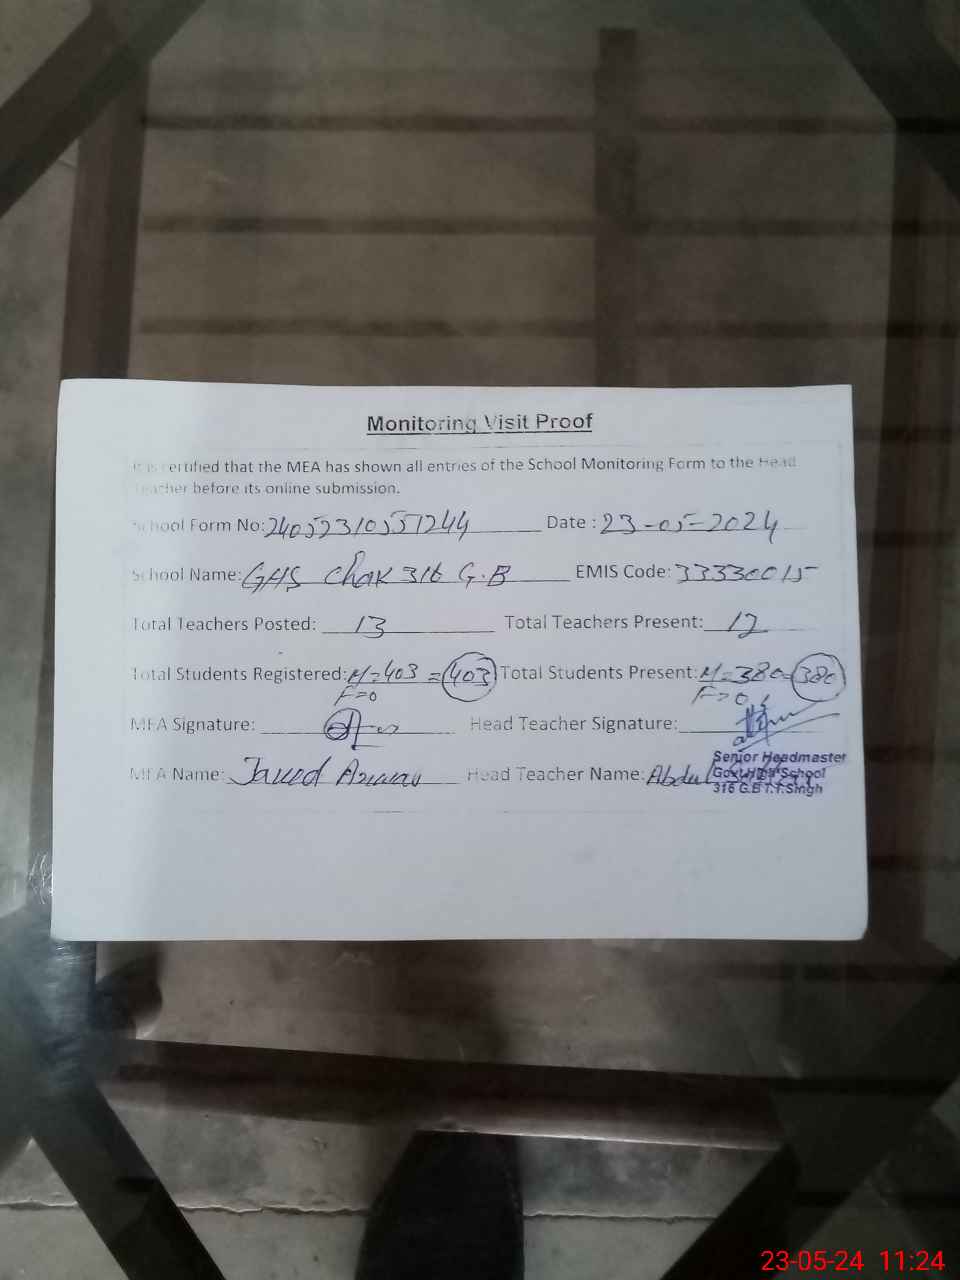 Monitoring Visit Proof
It is certified that the MEA has shown all entries of the School Monitoring Form to the Head
Teacher before its online submission.
School Form No: 24052310551244 Date : 23-05-2024
School Name: GHS Chak 316 G.B EMIS Code: 33330015
Total Teachers Posted: 13 Total Teachers Present: 12
Total Students Registered: M=403 =403 Total Students Present: M=380=380
F=0 F=0
MEA Signature: Head Teacher Signature:
MEA Name: Javed Head Teacher Name: Abdul
Senior Headmaster
Govt High School
316 G.B T.T.Singh
23-05-24 11:24